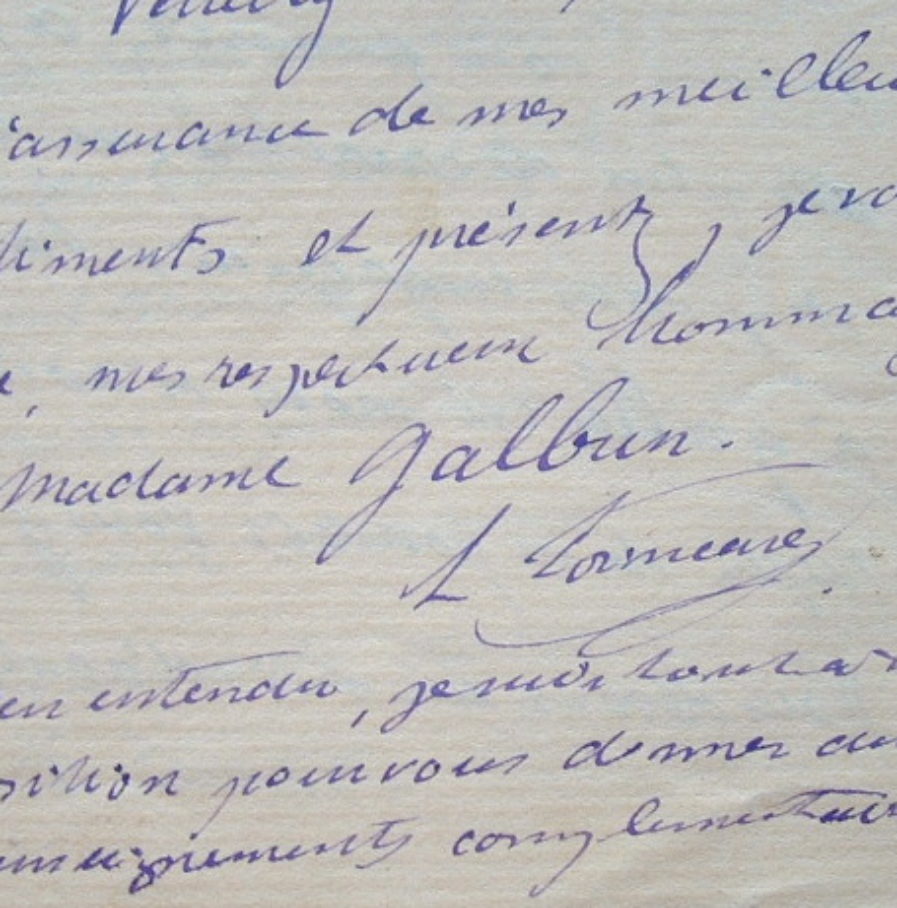 Veuillez
l'assurance de mes meilleu
timents et présentez, je vo
e, mes respectueux homma
Madame Galbrun.
L
en entendu, je suis tout à
sition pour vous donner
enseignements complémentair